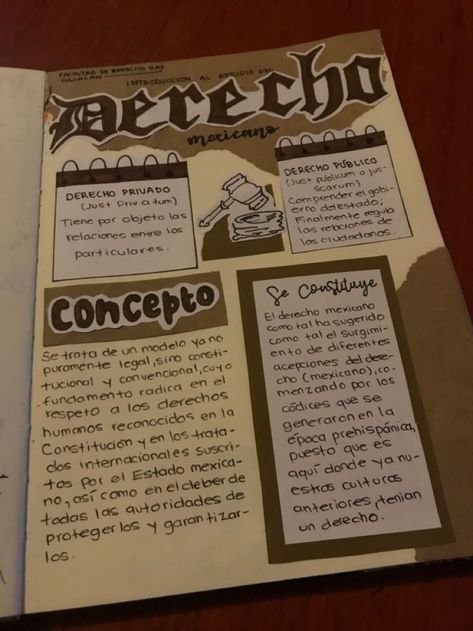 FACULTAD DE DERECHO UAS
CULIACÁN
INTRODUCCIÓN AL ESTUDIO DEL
Derecho
mexicano
DERECHO PRIVADO
(Just Privatum)
Tiene por objeto las
relaciones entre los
particulares.
DERECHO PÚBLICO
(Just publicum o jus
scarum)
Comprender el gobi-
erno del Estado;
Finalmente regula
las relaciones de
los ciudadanos.
Concepto
Se trata de un modelo ya no
puramente legal, sino consti-
tucional y convencional, cuyo
fundamento radica en el
respeto a los derechos
humanos reconocidos en la
Constitución y en los trata-
dos internacionales suscri-
tos por el Estado mexica-
no, así como en el deber de
todas las autoridades de
protegerlos y garantizar-
los.
Se Constituye
El derecho mexicano
como tal ha sugerido
como tal el surgimi-
ento de diferentes
acepciones del dere-
cho (mexicano), co-
menzando por los
códices que se
generaron en la
época prehispánica,
puesto que es
aquí donde ya nu-
estras culturas
anteriores, tenían
un derecho.